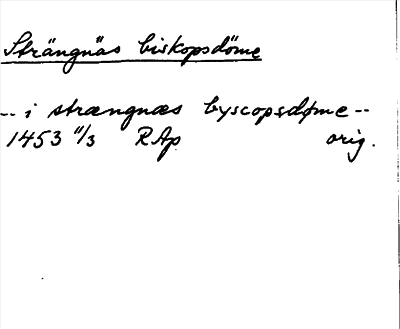 Strängnäs biskopsdöme
-- i strængnæs byscopsdøme --
1453 11/3 RAp orig.